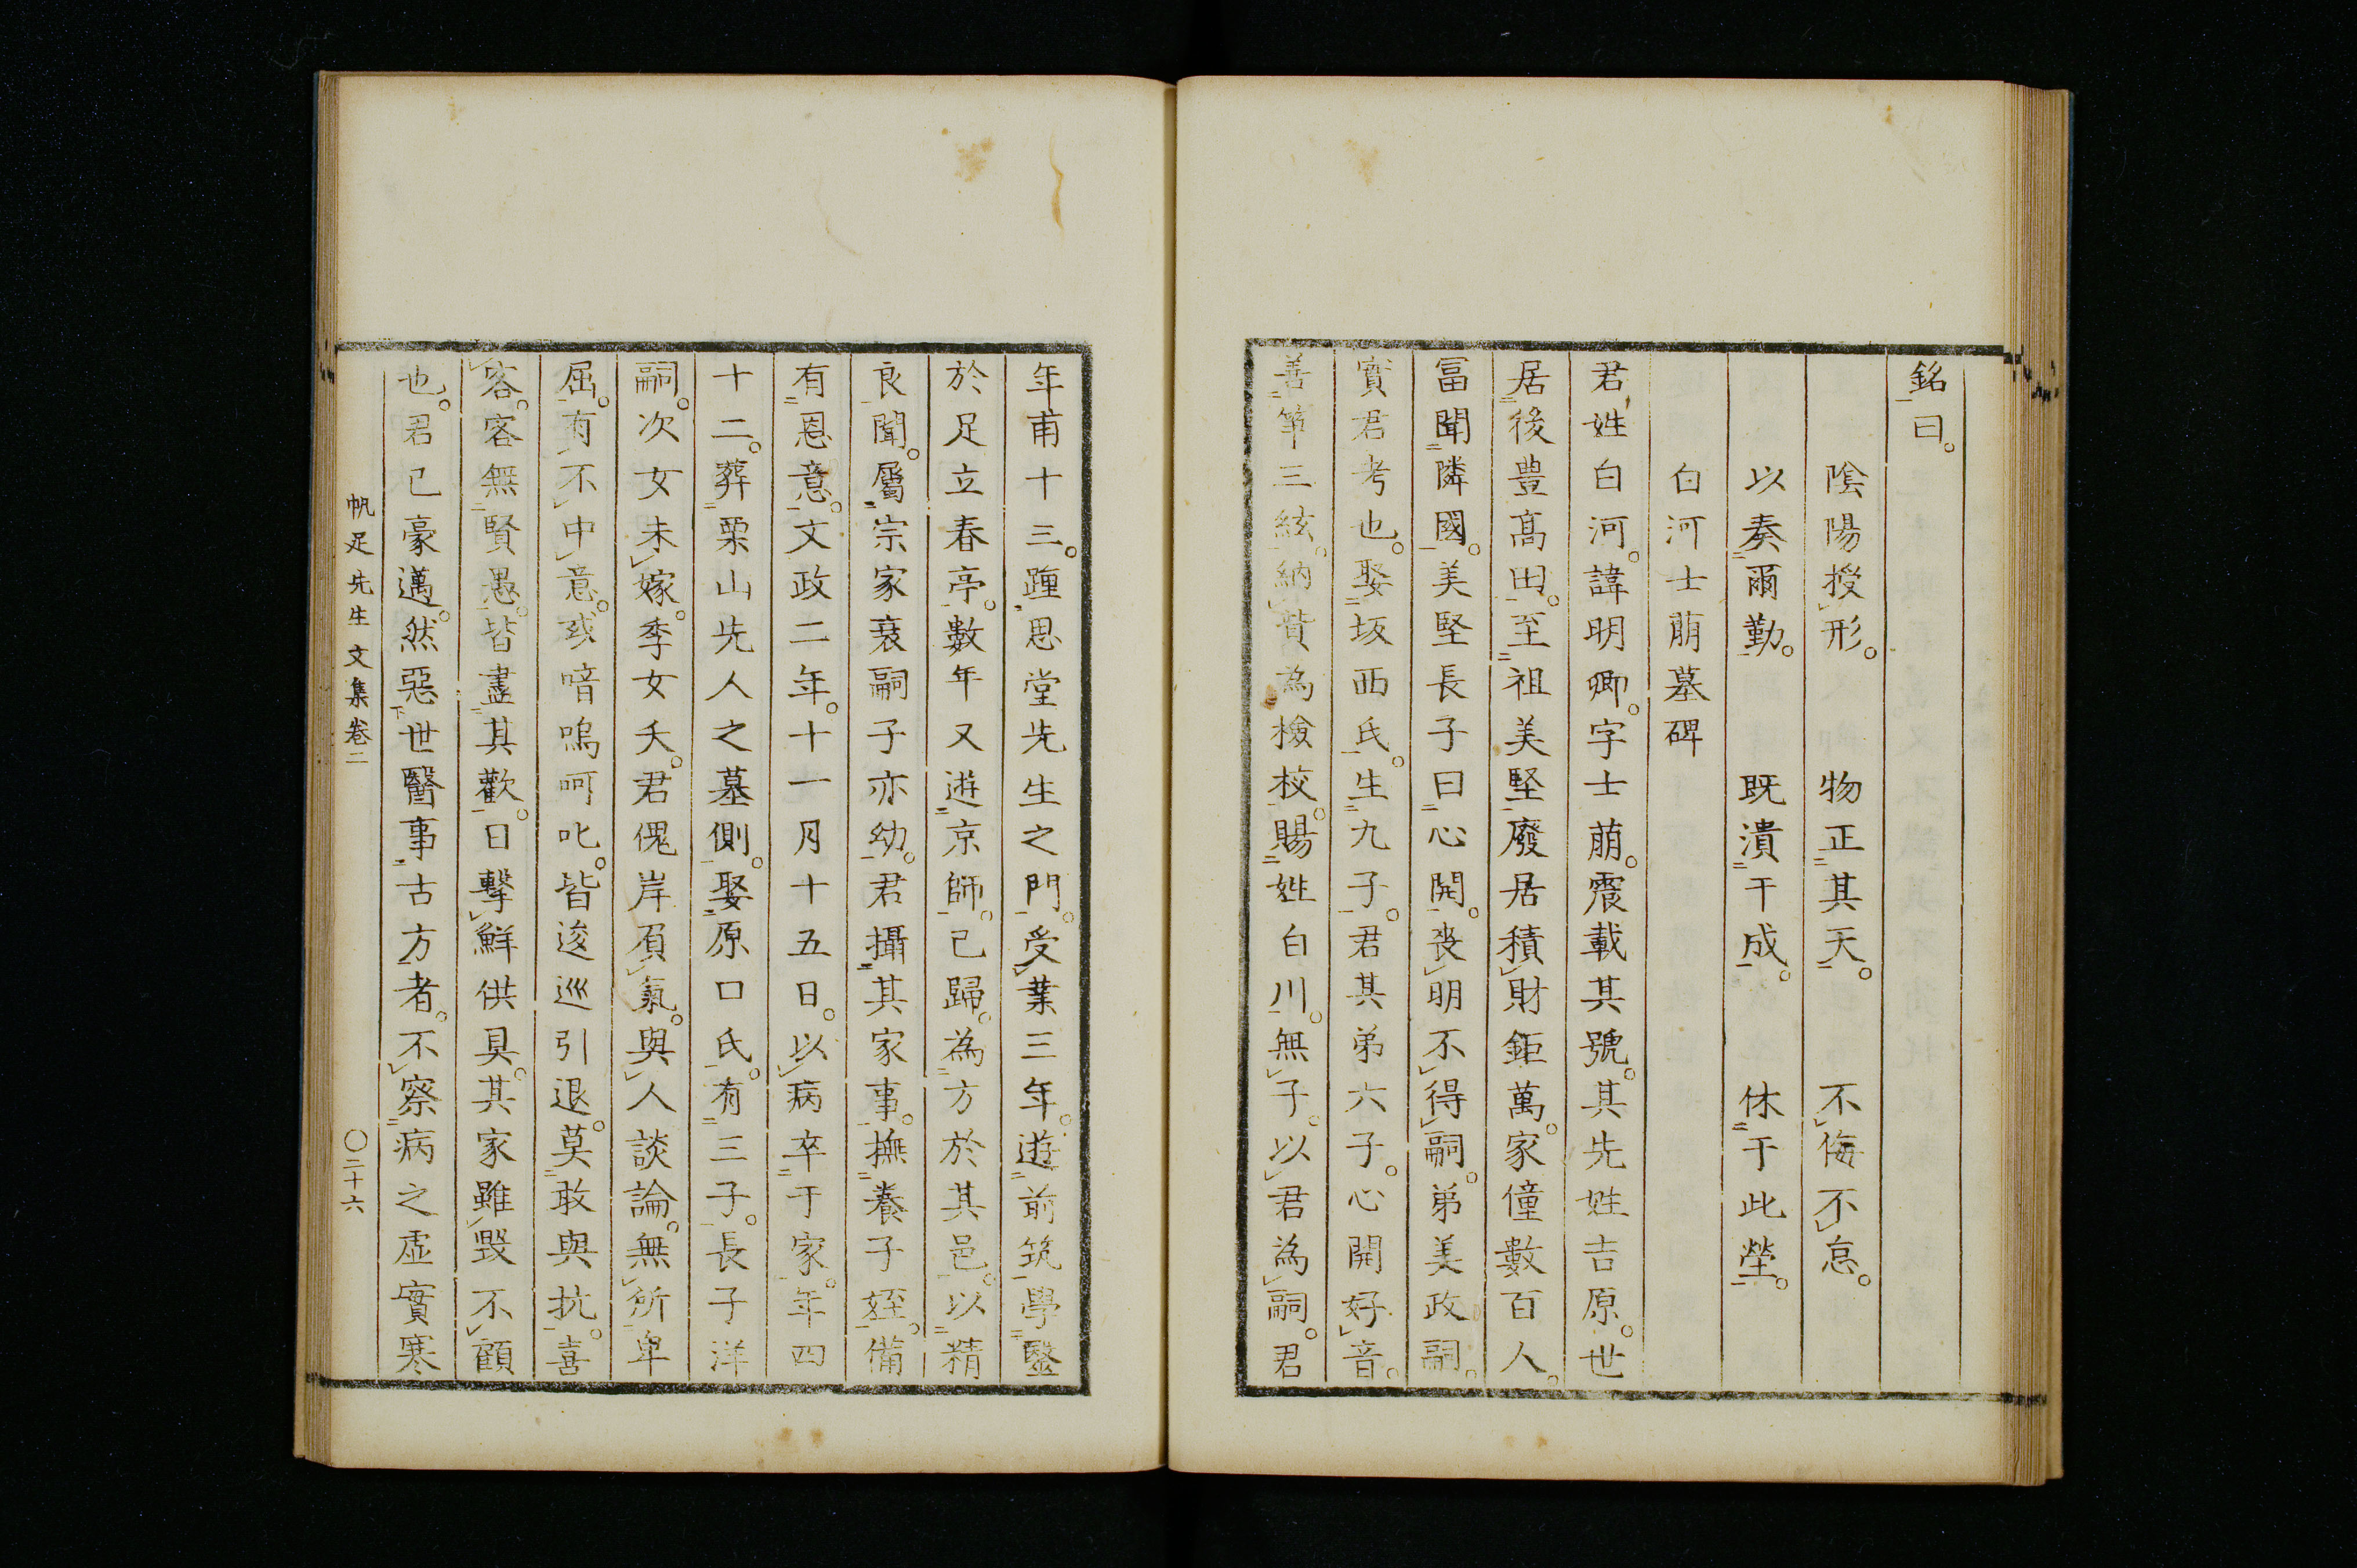 銘曰。
陰陽授形。　物正其天。　不侮不怠。
以奏爾勤。　既潰干成。　休于此塋。
白河士萠墓碑
君姓白河。諱明卿。字士萠。震載其號。其先姓吉原。世
居後豊高田。至祖美堅廢居積財鉅萬。家僮數百人。
冨聞隣國。美堅長子曰心開。喪明不得嗣。弟美政嗣。
實君考也。娶坂西氏。生九子。君其弟六子。心開好音。
善箏三絃。納貲為檢校。賜姓白川。無子。以君為嗣。君
年甫十三。踵思堂先生之門。受業三年。遊前筑學毉
於足立春亭。數年又遊京師。已歸。為方於其邑。以精
良聞。屬宗家衰嗣子亦幼。君攝其家事。撫養子姪。備
有恩意。文政二年。十一月十五日。以病卒于家。年四
十二。葬栗山先人之墓側。娶原口氏。有三子。長子洋
嗣。次女未嫁。季女夭。君傀岸負氣。與人談論。無所卑
屈。有不中意。或喑嗚呵叱。皆逡巡引退。莫敢與抗。喜
客。客無賢愚。皆盡其歡。日擊鮮供具。其家雖毀不顧
也。君已豪邁。然惡世醫事古方者。不察病之虛實寒
帆足先生文集卷二　〇二十六